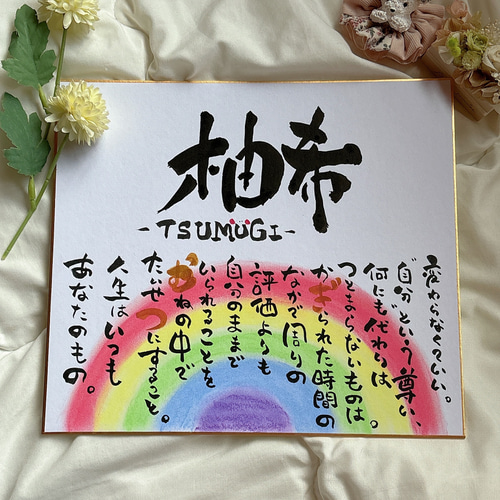 柚希
-TSUMUGI-
変わらなくていい。
自分という尊い、
何にも代わりは
つとまらないものは。
かぎられた時間の
なかで周りの
評価よりも
自分のままで
いられることを
むねの中で
たいせつにすること。
人生はいつも
あなたのもの。